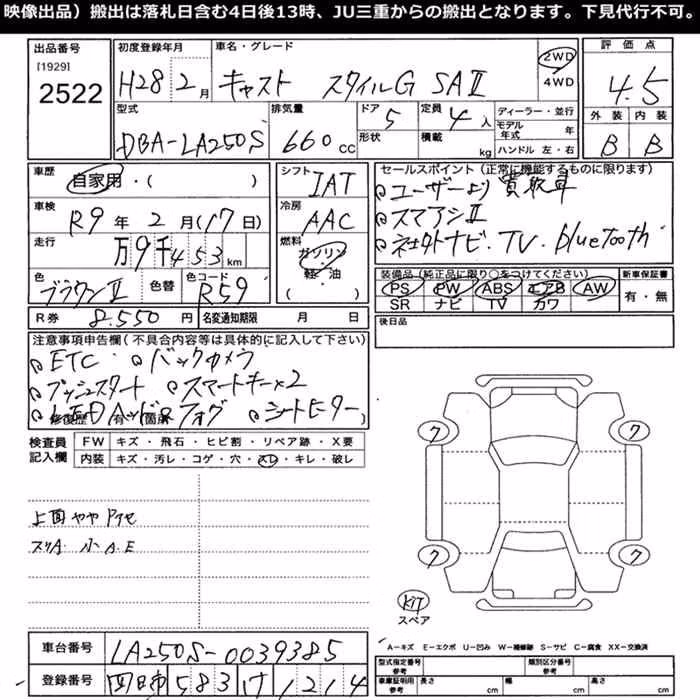 映像出品）搬出は落札日含む4日後13時、JU三重からの搬出となります。下見代行不可。
出品番号 [1929] 2522
初度登録年月 H28 2月
車名・グレード キャスト スタイルG SAⅡ
2WD 4WD
評価点 4.5
外装 B 内装 B
型式 DBA-LA250S
排気量 660cc
ドア 5 形状
定員 4人 積載 kg
ディーラー・並行
モデル年式 年
ハンドル 左・右
車歴 自家用・( )
車検 R9年2月(17日)
走行 万9千453km
色 ブラウンⅡ 色替 色コード R59
シフト IAT
冷房 AAC
燃料 ガソリン 軽・油 ( )
R券 8.550円 名変通知期限 月 日
セールスポイント（正常に機能するものに限ります）
ユーザーより買取車
スマアシⅡ
社外ナビ・TV・bluetooth
装備品（純正品に限り○をつけてください）
PS PW ABS エアB AW
SR ナビ TV カワ
新車保証書 有・無
後日品
注意事項申告欄(不具合内容等は具体的に記入して下さい)
ETC バックカメラ
プッシュスタート スマートキー×2
LEDヘッド&フォグ シートヒーター
修復歴 有 (箇所 )
検査員記入欄
FW キズ・飛石・ヒビ割・リペア跡・X要
内装 キズ・汚レ・コゲ・穴・スレ・キレ・破レ
上面やや
スリA. 小A.E
ワ ワ
ワ ワ
KIT
スペア
車台番号 LA250S-0039385
登録番号 四日市 583 け 1214
A-キズ E-エクボ U-凹み W-補修跡 S-サビ C-腐食 XX-交換済
型式指定番号 参考 類別区分番号 参考
車庫証明用 参考 長さ cm 幅 cm 高さ cm